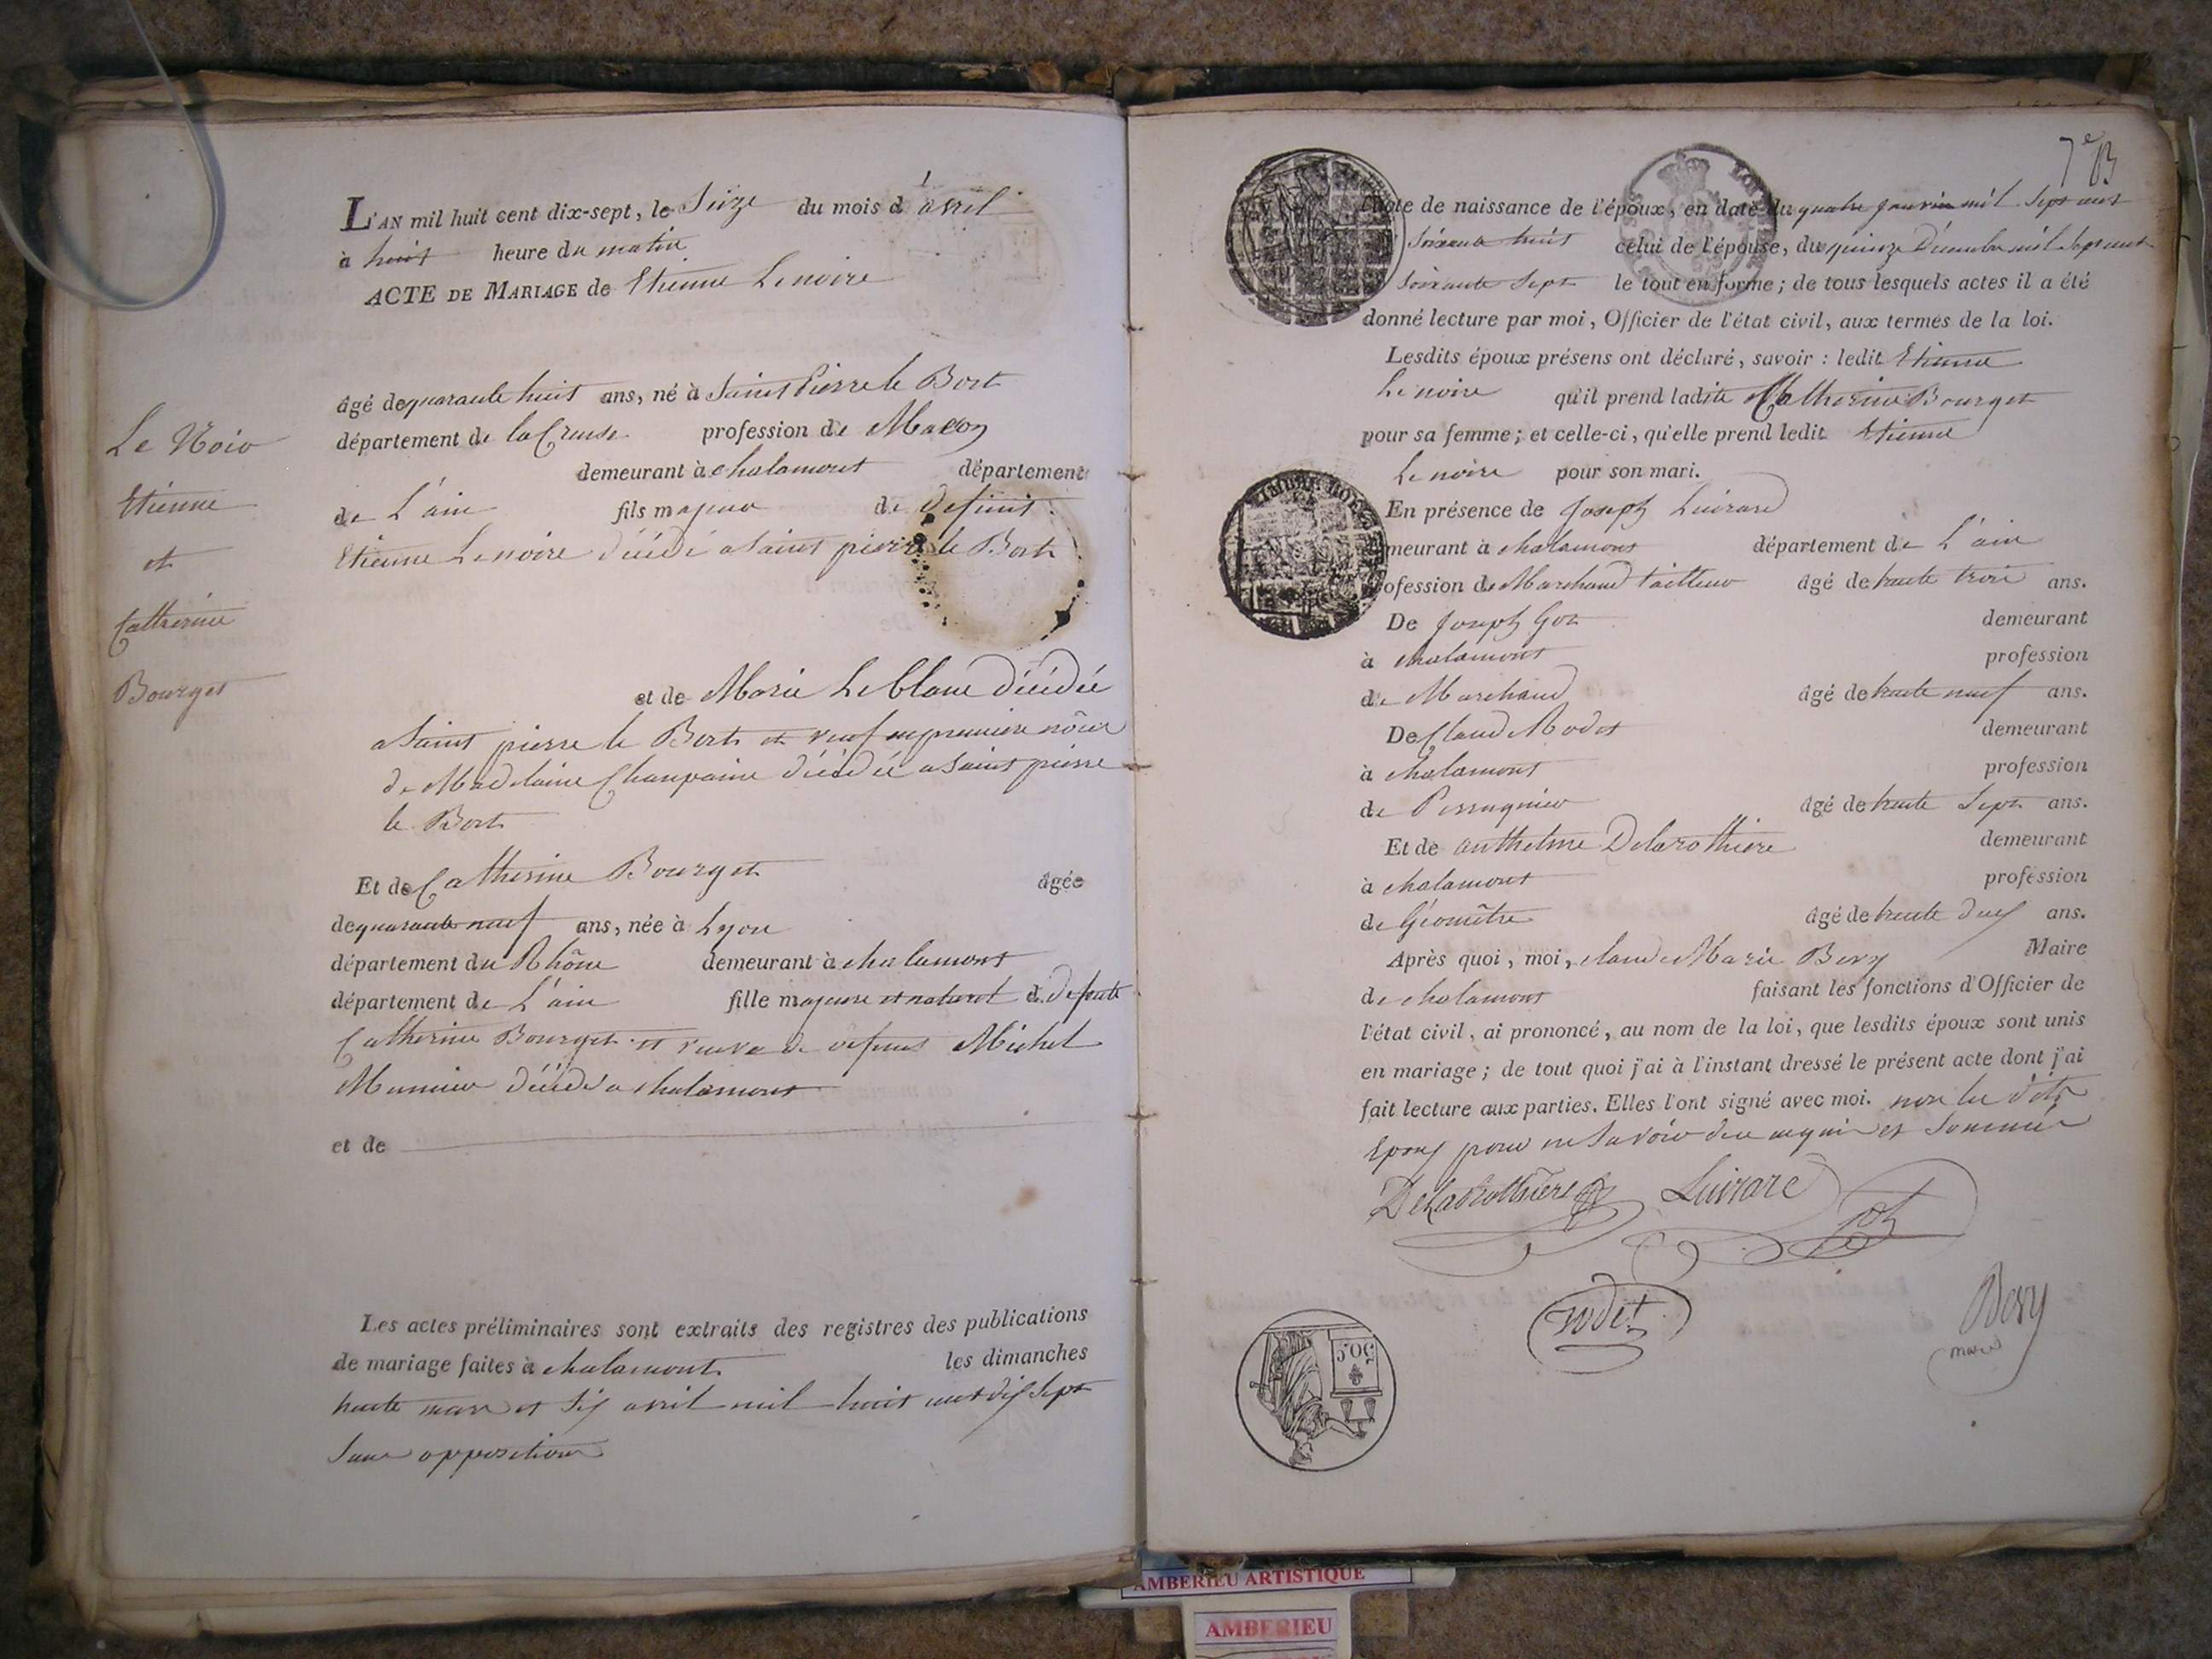 L'AN mil huit cent dix-sept, le Seize du mois d'avril
à huit heure du matin
ACTE DE MARIAGE de Etienne Lenoire
âgé de quarante huit ans, né à Saint Pierre le Bort
département de la Creuse profession de Maçon
demeurant à chalamont département
de L'ain fils majeur de defunt
Etienne Lenoire décédé a Saint pierre le Bort
et de Marie Leblanc décédée
a Saint pierre le Bort et veuf en premiere nôce
de Madelaine Champaine décédée a Saint pierre
le Bort
Et de Catherine Bourget âgée
de quarante neuf ans, née à Lyon
département du Rhône demeurant à chalamont
département de L'ain fille majeure et naturel de Defunte
Catherine Bourget et veuve de defunt Michel
Munier décédé a chalamont
et de
Les actes préliminaires sont extraits des registres des publications
de mariage faites à chalamont les dimanches
trente mars et Six avril mil huit cent dix Sept
Sans opposition
Le Noir
Etienne
et
Catherine
Bourget
7e B
L'acte de naissance de l'époux, en date du quatre janvier mil Sept cent
Soixante huit celui de l'épouse, du quinze Décembre mil Sept cent
Soixante Sept le tout en forme; de tous lesquels actes il a été
donné lecture par moi, Officier de l'état civil, aux termes de la loi.
Lesdits époux présens ont déclaré, savoir : ledit Etienne
Lenoire qu'il prend ladite Catherine Bourget
pour sa femme; et celle-ci, qu'elle prend ledit Etienne
Lenoire pour son mari.
En présence de Joseph Luivrard
demeurant à chalamont département de L'ain
profession de Marchand tailleur âgé de trente trois ans.
De Joseph Goz demeurant
à chalamont profession
de Marchand âgé de trente neuf ans.
De Claude Rodet demeurant
à chalamont profession
de Perruquier âgé de trente Sept ans.
Et de anthelme Delarothiere demeurant
à chalamont profession
de Géomêtre âgé de trente deux ans.
Après quoi, moi, claude Marie Bevy Maire
de chalamont faisant les fonctions d'Officier de
l'état civil, ai prononcé, au nom de la loi, que lesdits époux sont unis
en mariage; de tout quoi j'ai à l'instant dressé le présent acte dont j'ai
fait lecture aux parties. Elles l'ont signé avec moi. non les dits
Epoux pour ne Savoir de ce enquis et Sommés
Delarothiere Luivrare
rodet
Bevy
maire
50C
AMBERIEU ARTISTIQUE
AMBERIEU